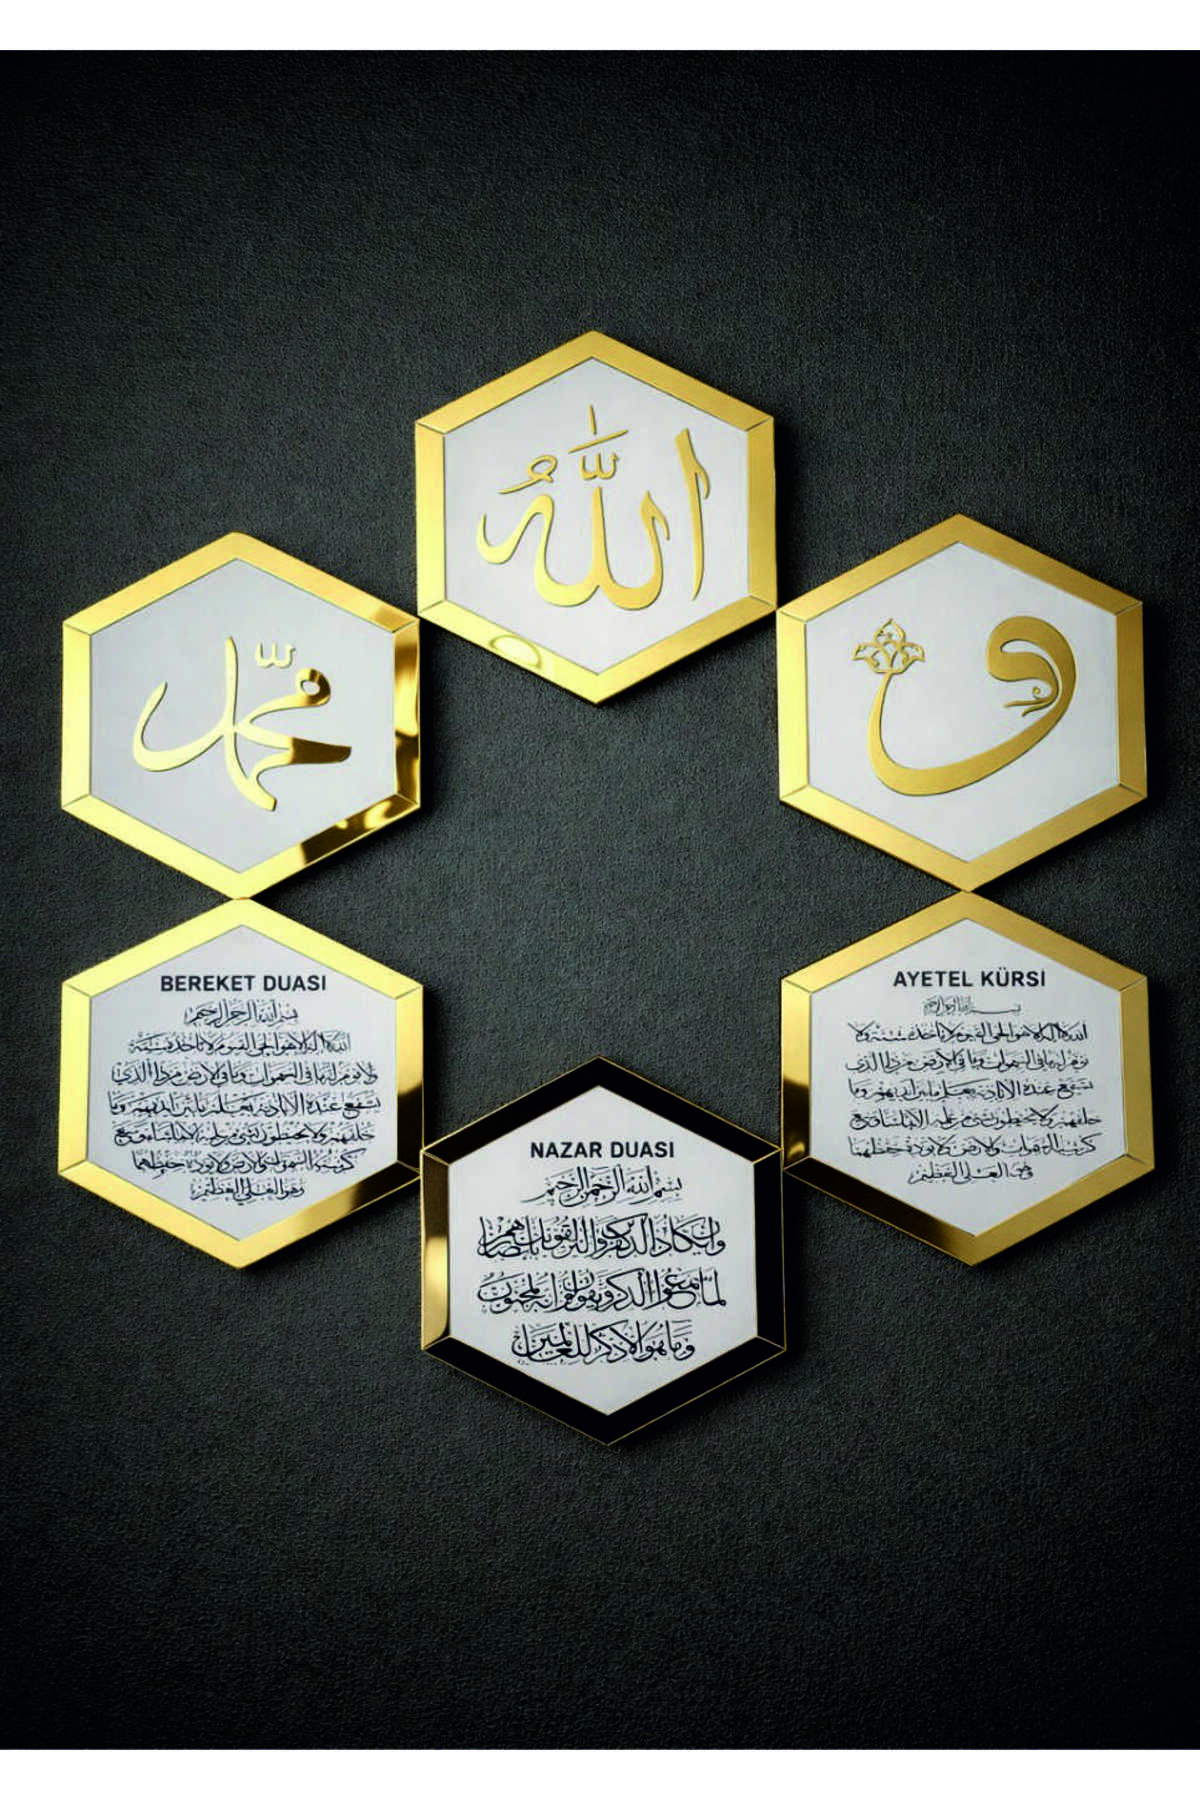 الله
محمد
و
BEREKET DUASI
بسم الله الرحمن الرحيم
الله لا إله إلا هو الحي القيوم لا تأخذه سنة
ولا نوم له ما في السموات وما في الأرض من ذا الذي
يشفع عنده إلا بإذنه يعلم ما بين أيديهم وما
خلفهم ولا يحيطون بشيء من علمه إلا بما شاء وسع
كرسيه السموات والأرض ولا يؤده حفظهما
وهو العلي العظيم
AYETEL KÜRSI
الله لا إله إلا هو الحي القيوم لا تأخذه سنة ولا
نوم له ما في السموات وما في الأرض من ذا الذي
يشفع عنده إلا بإذنه يعلم ما بين أيديهم وما
خلفهم ولا يحيطون بشيء من علمه إلا بما شاء وسع
كرسيه السموات والأرض ولا يؤده حفظهما
وهو العلي العظيم
NAZAR DUASI
بسم الله الرحمن الرحيم
وإن يكاد الذين كفروا ليزلقونك بأبصارهم
لما سمعوا الذكر ويقولون إنه لمجنون
وما هو إلا ذكر للعالمين